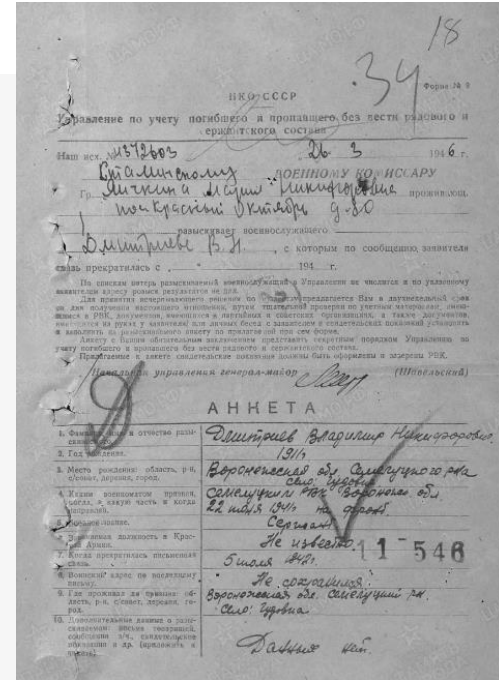 18
34
Форма № 9
НКО СССР
Управление по учету погибшего и пропавшего без вести рядового и
сержантского состава
Наш исх. № 4372603 26 3 1946 г.
Сталинскому ВОЕННОМУ КОМИССАРУ
Гр. Мария Никифоровна проживающ.
Красный Октябрь д-80
разыскивает военнослужащего
Дмитриева В.Н., с которым по сообщению заявителя
связь прекратилась с 194 г.
По спискам потерь разыскиваемый военнослужащий в Управлении не числится и по указанному
заявителем адресу розыск результатов не дал.
Для принятия исчерпывающего решения по предлагается Вам в двухнедельный срок
со дня получения настоящего отношения, путем тщательной проверки по учетным материалам, имею-
щимся в РВК, документам, имеющимся в партийных и советских организациях, а также документов,
имеющихся на руках у заявителя; или личных бесед с заявителем и свидетельских показаний установить
и заполнить на разыскиваемого анкету по прилагаемой при сем форме.
Анкету с Вашим обязательным заключением представить секретным порядком Управлению по
учету погибшего и пропавшего без вести рядового и сержантского состава.
Прилагаемые к анкете свидетельские показания должны быть оформлены и заверены РВК.
Начальник управления генерал-майор (Шавельский)
АНКЕТА
1. Фамилия, имя и отчество разы-
скиваемого. Дмитриев Владимир Никифорович.
2. Год рождения. 1911г
3. Место рождения: область, р-н,
с/совет, деревня, город. Воронежская обл. Семелуцкого р-на
село:
4. Каким военкоматом призван,
когда, в какую часть и когда
направлен. Семелуцким РВК Воронеж обл
22 июля 1941г на фронт.
5. Воинское звание. Сержант
6. Занимаемая должность в Крас-
ной Армии. Не известно.
11 546
7. Когда прекратилась письменная
связь. 5 июля 1942г.
8. Воинский адрес по последнему
письму. Не сохранился.
9. Где проживал до призыва: об-
ласть, р-н, с/совет, деревня, го-
род. Воронежская обл. Семелуцкий р-н.
село:
10. Дополнительные данные о разы-
скиваемом: письма товарищей,
сообщения в/ч, свидетельские
показания и др. (приложить к
анкете). Данных нет.